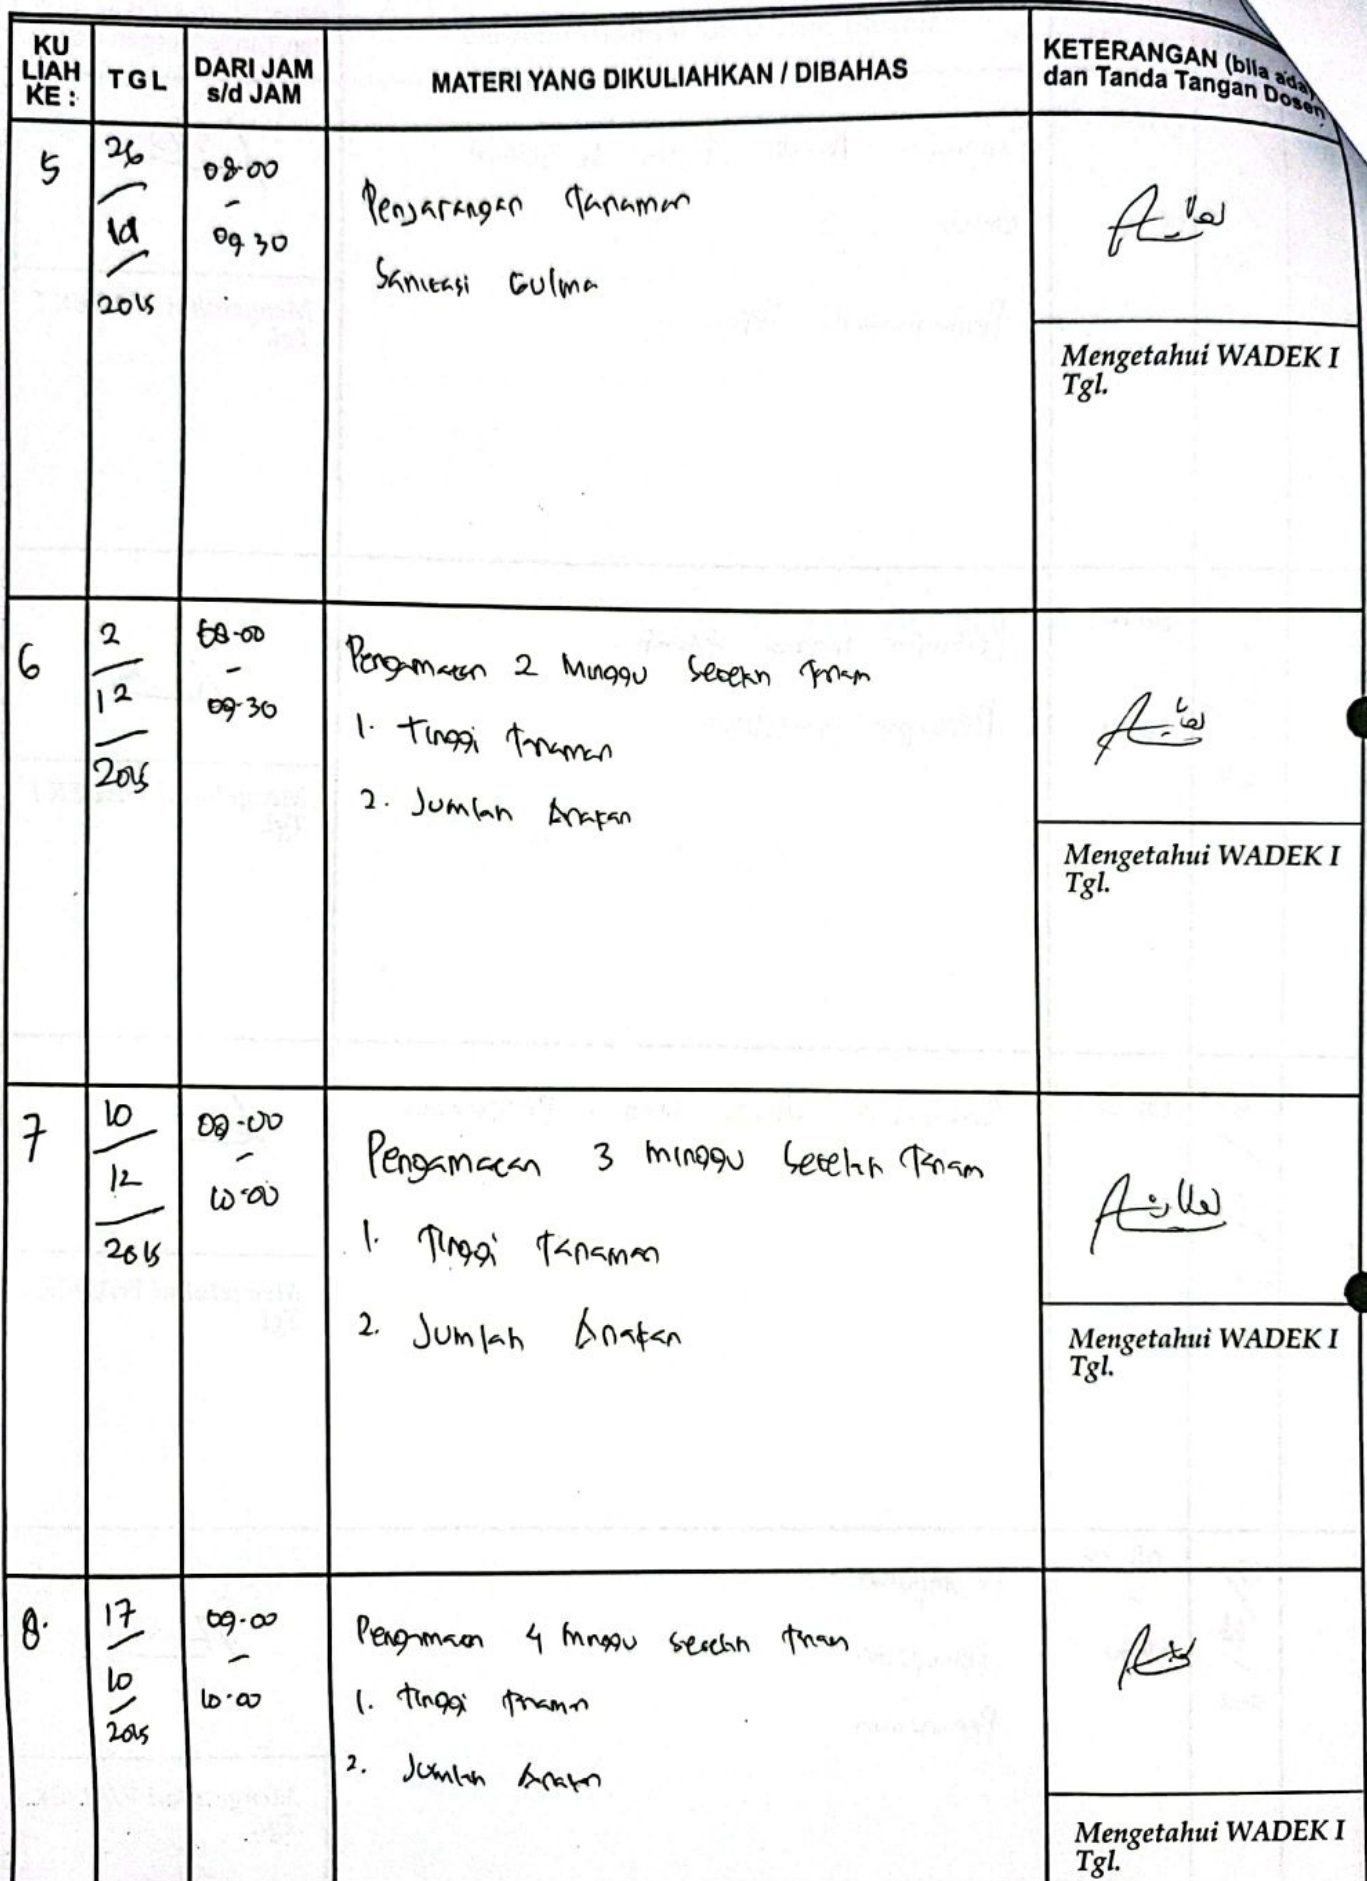 KU LIAH KE :
TGL
DARI JAM s/d JAM
MATERI YANG DIKULIAHKAN / DIBAHAS
KETERANGAN (bila ada)
dan Tanda Tangan Dosen
5
26
2015
08.00
-
09.30
Penjarangan Tanaman
Sanitasi Gulma
Mengetahui WADEK I
Tgl.
6
2
12
2015
08.00
-
09.30
Pengamatan 2 Minggu Setelah Tanam
1. Tinggi Tanaman
2. Jumlah Anakan
Mengetahui WADEK I
Tgl.
7
10
12
2015
09.00
-
10.00
Pengamatan 3 minggu Setelah Tanam
1. Tinggi Tanaman
2. Jumlah Anakan
Mengetahui WADEK I
Tgl.
8.
17
10
2015
09.00
-
10.00
Pengamatan 4 minggu setelah tanam
1. Tinggi Tanaman
2. Jumlah Anakan
Mengetahui WADEK I
Tgl.